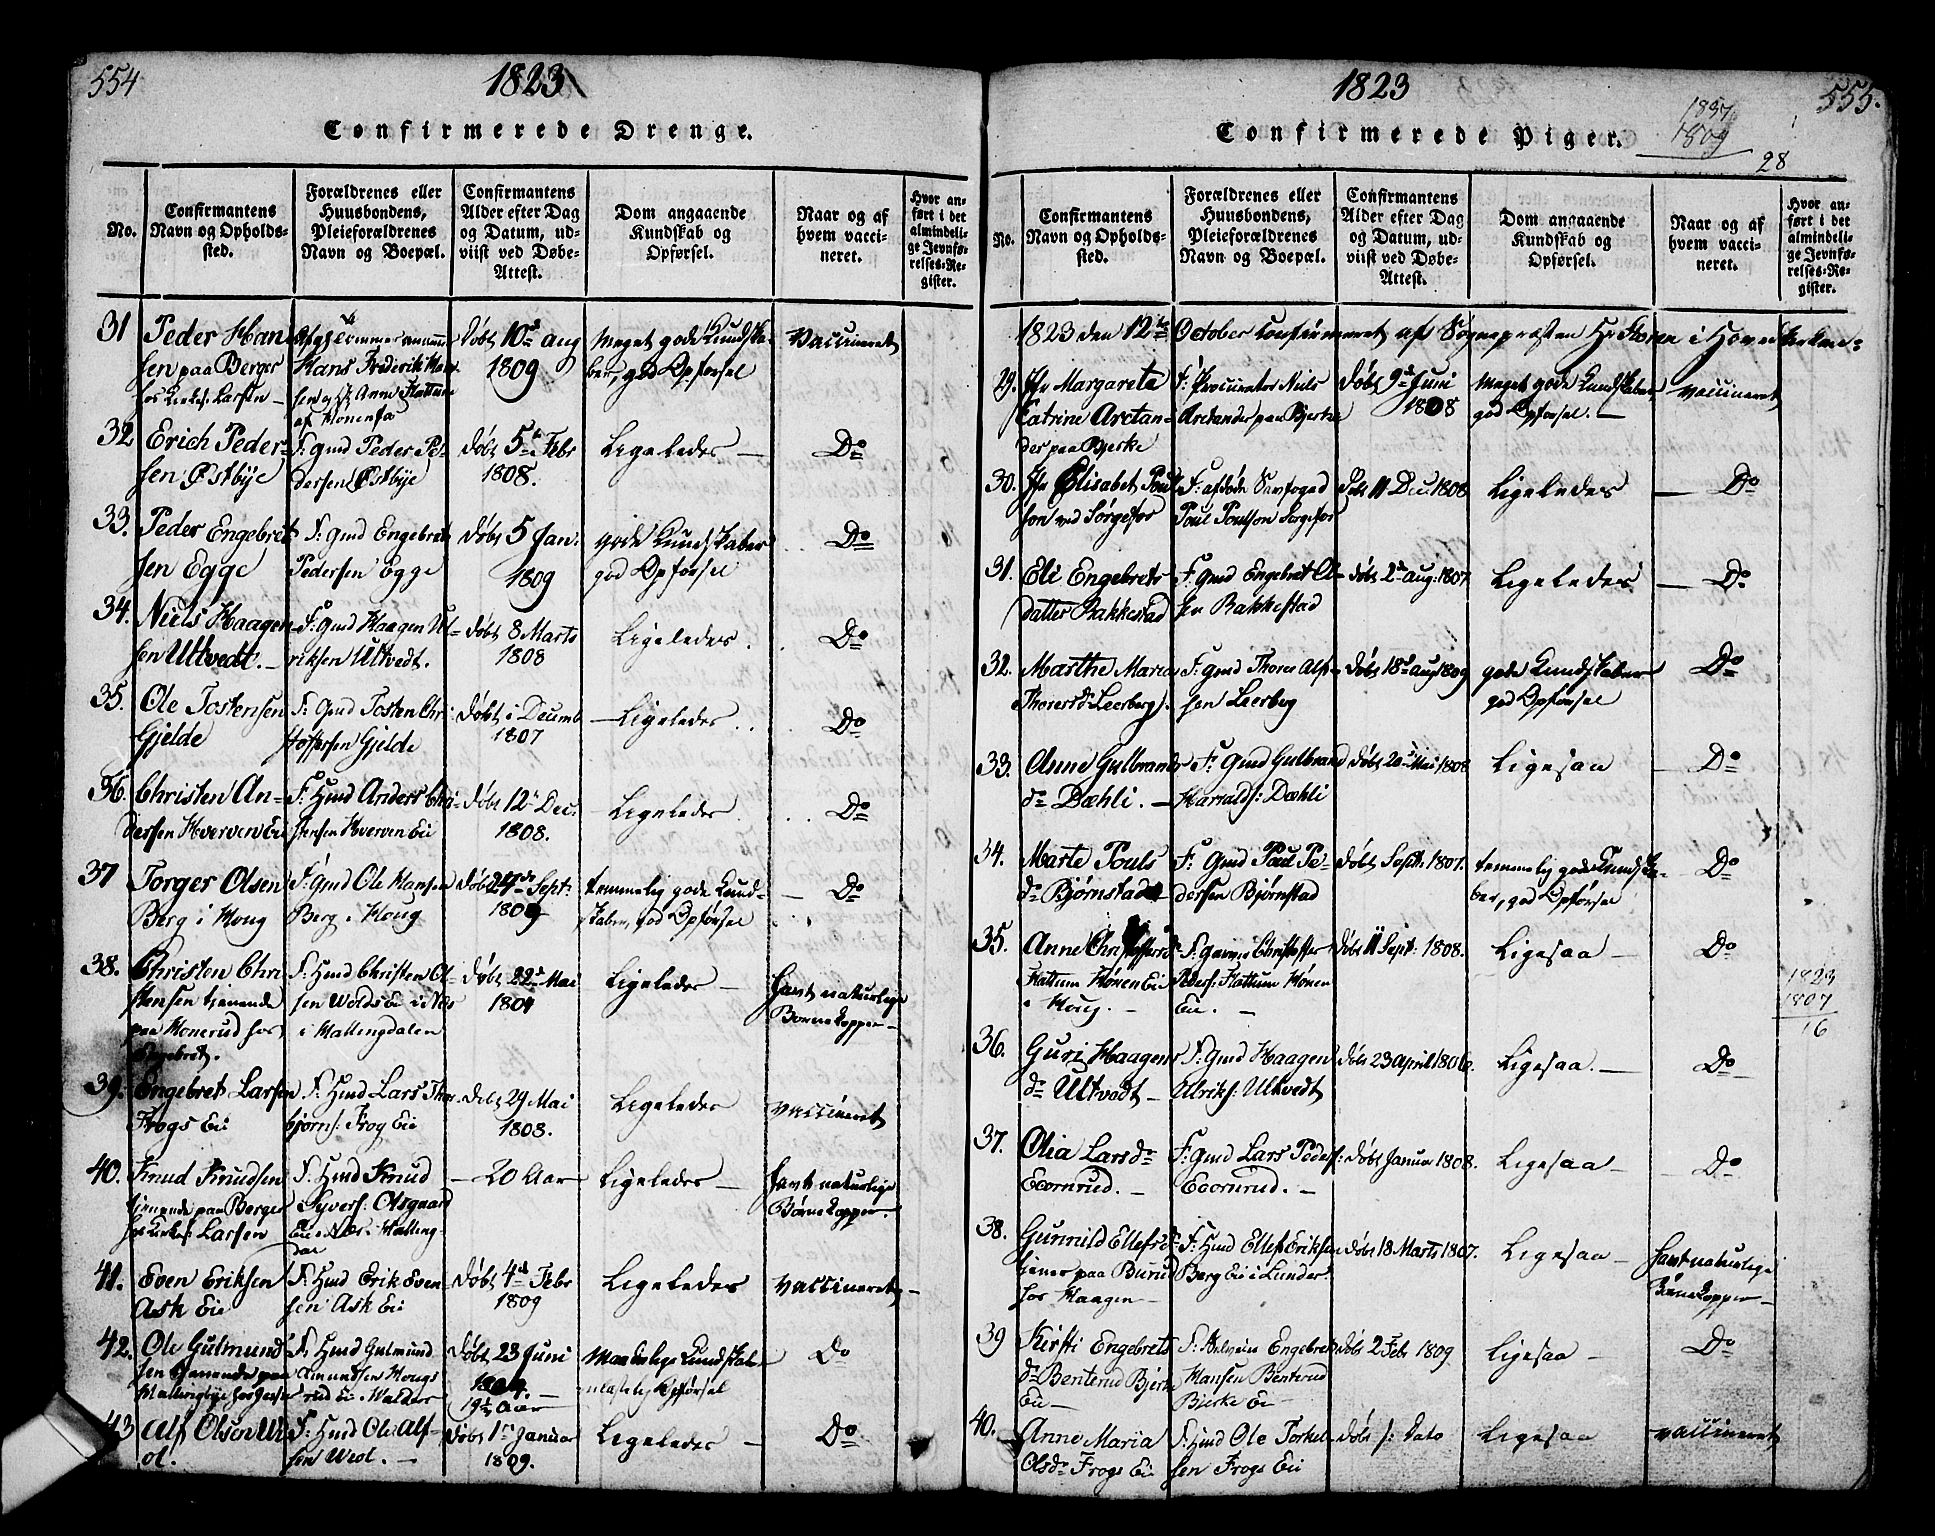 554
1823
Confirmerede Drenge.
No.
Confirmantens
Navn og Opholds-
sted.
Forældrenes eller
Huusbondens,
Pleieforældrenes
Navn og Boepæl.
Confirmantens
Alder efter Dag
og Datum, ud-
viist ved Døbe-
Attest.
Dom angaaende
Kundskab og
Opførsel.
Naar og af
hvem vacci-
neret.
Hvor an-
ført i det
almindeli-
ge Jevnfø-
relses-Re-
gister.
31 Peder Han
sen paa Berger
hos Larsen
Hans Frederik Han
sen
af Hønenfa
Døbt 10de aug
1809
Meget gode Kundska-
ber, god Opførsel
Vaccineret
32 Erich Peder-
sen Østbye
F: Gmd Peder Pe-
dersen Østbye
Døbt 5te Febr
1808.
Ligeledes —
Do
33. Peder Engebret
sen Egge
F: Gmd Engebret
Pedersen Egge
Døbt 5 Jan:
1809
gode Kundskaber
god Opførsel
Do
34. Niels Haagen
sen Ultvedt. —
F: Gmd Haagen Ul-
riksen Ultvedt.
Døbt 8 Marts
1808
Ligeledes.
Do
35. Ole Tostensen
Gjelde
F: Gmd Tosten Chri
stoffersen Gjelde
Døbt i Decemb
1807
Ligeledes
Do
36. Christen An-
dersen Hverven Eie
F: Hmd Anders Chri-
stensen Hverven Eie
Døbt 12te Dec.
1808.
Ligeledes
Do
37 Torger Olsen
Berg i Houg
F: Gmd Ole Hansen
Berg i Houg
Døbt 24de Sept:
1809
temmelig gode Kund-
skaber, god Opførsel
Do
38. Christen Chri
stensen tjenende
paa Honerud hos
Engebret.
F: Hmd Christen Ol-
sen Wolds Eie i Næs
i Hallingdalen
Døbt 22de Mai
Ligeledes —
havt naturlige
Børnekopper —
39. Engebret Larsen
Frogs Eie
F: Hmd Lars Thor
bjørns: Frog Eie
Døbt 29 Mai
1808.
Ligeledes
vaccineret
40. Knud Knudsen
tjenende paa Berger
hos Larsen
F. Hmd Knud
Syvers: Olsgaard
Eie i Næs. Halling-
dal
— 20 Aar
Ligeledes —
havt naturlige
Børnekopper.
41. Even Eriksen
Ask Eie
F: Hmd Erik Even
sen Ask Eie
Døbt 4de Febr
1809
Ligeledes
vaccineret —
42. Ole Gulmund
sen tjenende paa
F. Hmd Gulmund
Amundsen Hougs
rud Eie i Walders
Døbt 23 Juni
1804. —
19½ Aar
Maadelige Kundskaber
ulastelig Opførsel
Do
43 Alf Olsen Wi
ol.
F: Hmd Ole Alf-
sen Weol. —
Døbt 1ste Januar
1809.
Ligeledes —
Do
1823
555.
Confirmerede Piger.
1837
1809
28
No.
Confirmantens
Navn og Opholds-
sted.
Forældrenes eller
Huusbondens,
Pleieforældrenes
Navn og Boepæl.
Confirmantens
Alder efter Dag
og Datum, ud-
viist ved Døbe-
Attest.
Dom angaaende
Kundskab og
Opførsel.
Naar og af
hvem vacci-
neret.
Hvor an-
ført i det
almindeli-
ge Jevnfø-
relses-Re-
gister.
1823 den 12te October Confirmeret af Sognepræsten Hr Steen i Hoved Kirken:
29. Jfr Margareta
Catrine Arctan-
der paa Bjerke
F: Procurator Niels
Arctander paa Bjerke
Døbt 9de Juni
1808
Meget gode Kundskaber
god Opførsel. —
vaccineret
30. Jfr Elisabet Poul
son ved Sørgefos
F: afdøde Sawfoged
Poul Poulson Sørgefos
Døbt 11 Dec: 1808
Ligeledes —
Do
31. Eli Engebrets
datter Bakkestad
F: Gmd Engebret Ol-
sen Bakkestad
Døbt 2de aug: 1807
Ligeledes —
Do
32. Marthe Maria
Thorersd: Leerberg.
F: Gmd Thorer Alf-
sen Leerberg
Døbt 18de aug 1809
gode Kundskaber
god Opførsel
Do
33. Anne Gulbrands
dr Dæhli. —
F: Gmd Gulbrand
Haralds: Dæhli
Døbt 20de Mai 1808
Ligesaa —
Do
34. Marte Pouls
dr Bjørnstad
F: Gmd Poul Pe-
dersen Bjørnstad
Døbt Sept: 1807.
temmelig gode Kundska-
ber, god Opførsel
Do
35. Anne Christoffers
Hattum Hønen Eie
i Houg. —
Christoffer
Peders: Hattum Hønen
Eie. —
Døbt 11 Sept: 1808.
Ligesaa —
Do
1823
1807
16
36. Guri Haagens
dr Ultvedt —
F: Gmd Haagen
Ulriks: Ultvedt
Døbt 23 April 1806.
Ligesaa. —
Do
37. Olia Larsdr
Eeornrud. —
F: Gmd Lars Peders:
Eeornrud. —
Døbt Januar 1808.
Ligesaa —
Do
38. Gunnild Ellefsd
tjener paa Burud
hos Haagen —
F: Hmd Ellef Eriksen
Berg Eie i Lunder.
Døbt 18 Marts 1807.
Ligesaa —
havt naturlige
Børnekopper —
39 Kirsti Engebrets
dr Benterud Bjerke
Eie —
Engebret
Hansen Benterud
Bjerke Eie
Døbt 2 Febr 1809
Ligesaa —
Do
40. Anne Maria
Olsdr Frogs Eie
F: Hmd Ole Torkel-
sen Frogs Eie
Døbt s: Dato
Ligesaa
vaccineret